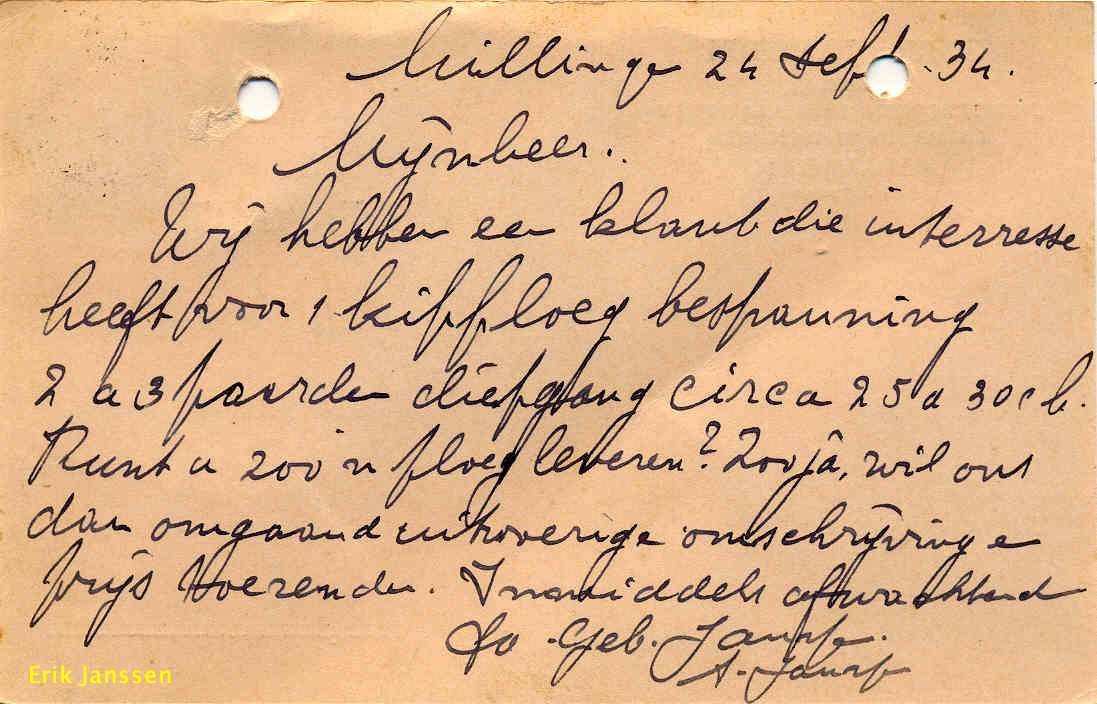 Millinge 24 Sept. 34.
Mijnheer.
Wij hebben een klant die interresse
heeft voor 1 kipploeg bespanning
2 a 3 paarden diepgang circa 25 a 30 c
Kunt u zoo'n ploeg leveren? Zoo ja, wil ons
dan omgaand uitvoerige omschrijving e
prijs toezenden. Inmiddels afwachtend
Geb. Jansen.
A. Jansen
Erik Janssen